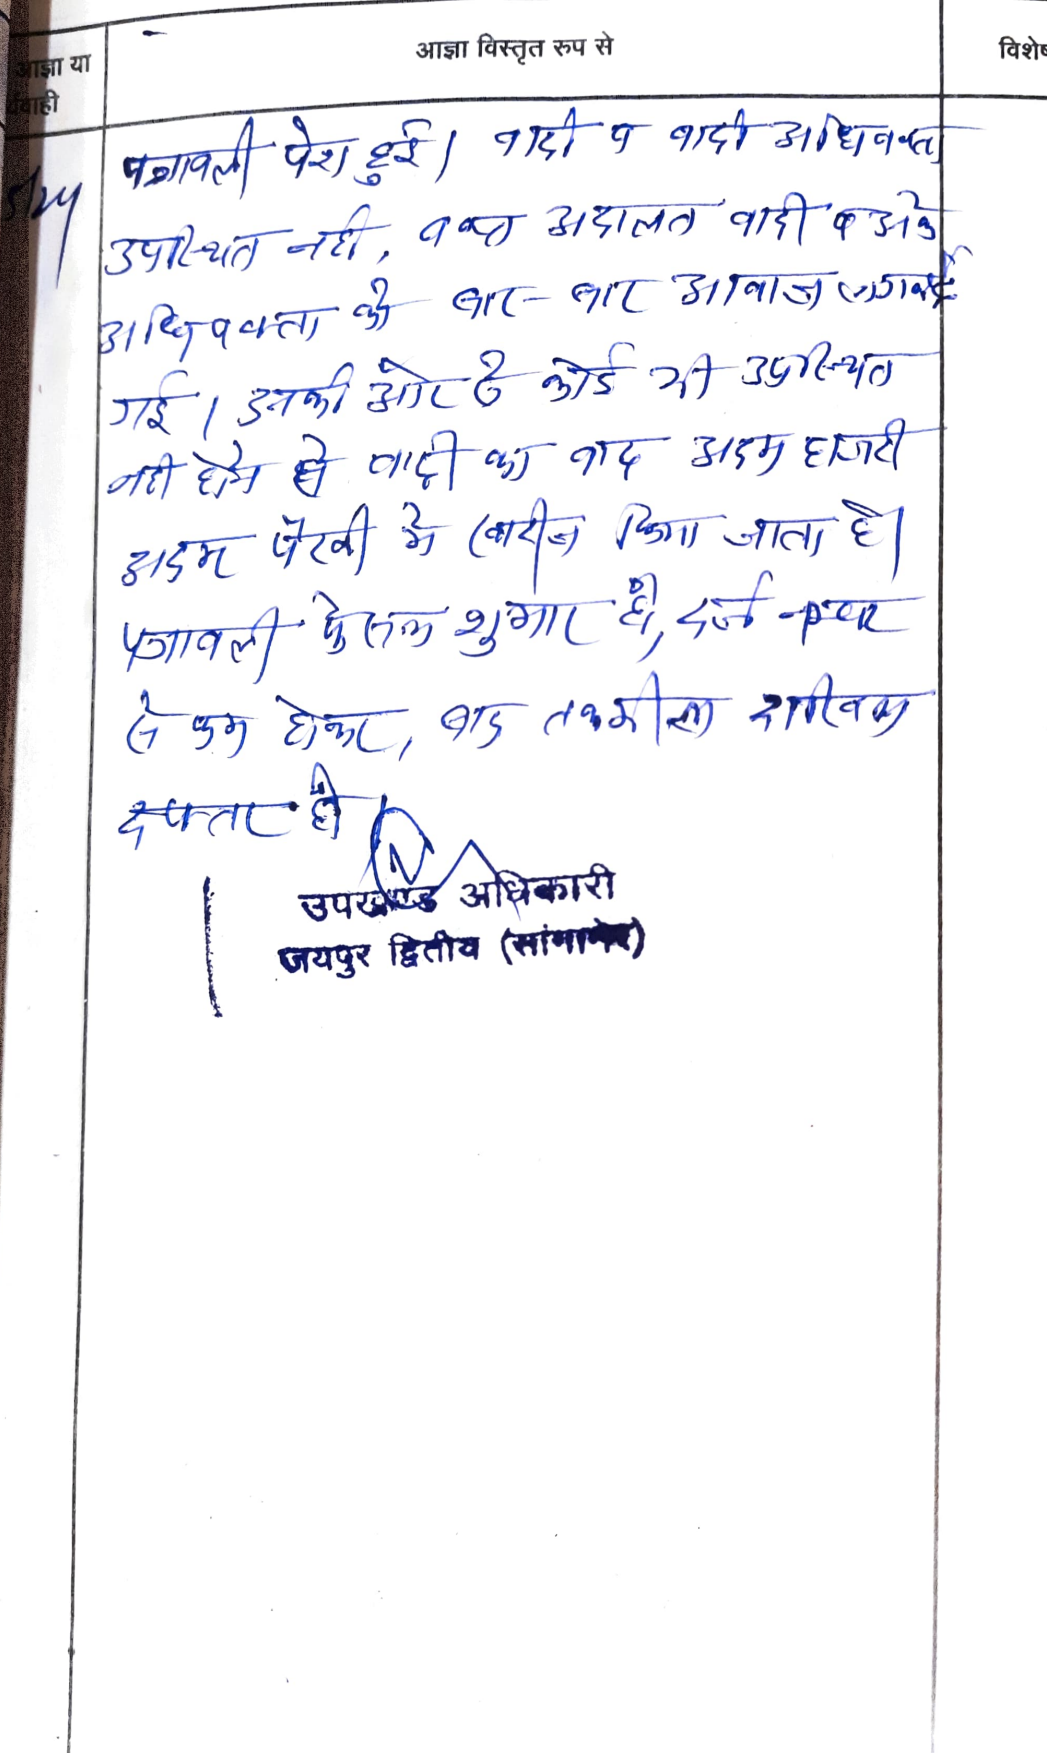 आज्ञा या
वाही
आज्ञा विस्तृत रुप से
विशेष
पत्रावली पेश हुई। वादी व वादी अधिवक्ता
उपस्थित नही, वक्त अदालत वादी व
अधिवक्ता को बार-बार आवाज लगवाई
गई। इनकी ओर से कोई भी उपस्थित
नही होने से वादी का वाद अदम हाजरी
अदम पैरवी मे खारीज किया जाता है।
पत्रावली फैसल शुमार हो, दर्ज नम्बर
से कम होकर, बाद तकमील दाखिल
दफ्तर हो।
उपखण्ड अधिकारी
जयपुर द्वितीय (सांगानेर)